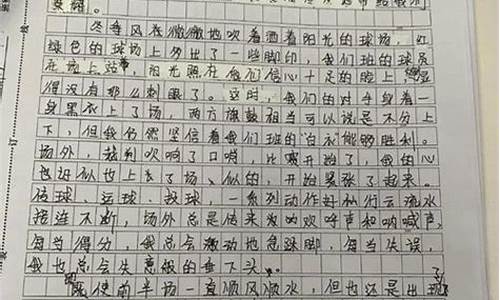 冬季风在微微地吹着洒着阳光的球场,红
绿色的球场上多出了一些脚印,我们班的球员
在场上站,阳光照在他们信心十足的脸上
得没有那么刺眼了。这时,我们的对手身着一
身黑衣上了场,两方旗鼓相当可以说是不分上
下,但我仍然坚信着我们班的“白衣能够胜利。
场外,裁判吹响了口哨,比赛开始了,我的心
也近似也上了场、似的,开始紧张了起来。
传球、运球、投球,一系列动作好似行云流水
接连不断,场外总是传来为的欢呼声和呐喊声,
每当得分,我总会激动地急跺脚,每当失误,
我也总会失意般的垂下头。
既使前半场一直顺风顺水,但也还是出现